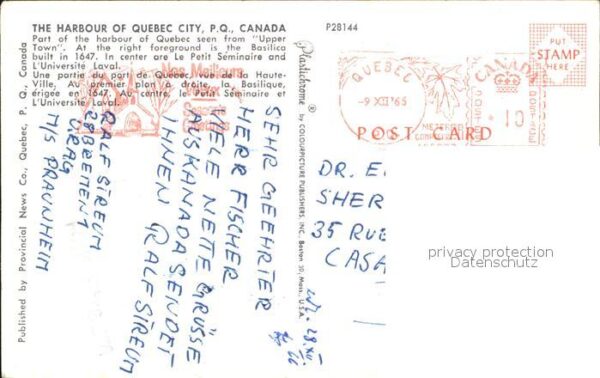 THE HARBOUR OF QUEBEC CITY, P.Q., CANADA
Part of the harbour of Quebec seen from "Upper
Town". At the right foreground is the Basilica
built in 1647. In center are Le Petit Séminaire and
L'Université Laval.
Une partie du port de Québec, vue de la Haute-
Ville. Au premier plan à droite, la Basilique,
érigée en 1647. Au centre, le Petit Séminaire et
L'Université Laval.
P28144
PUT
STAMP
HERE
QUEBEC
-9 XII '65
CANADA
POSTAGE
10
POST CARD
Plastichrome ® by COLOURPICTURE PUBLISHERS, INC. Boston 30, Mass., U.S.A.
Published by Provincial News Co., Quebec, P. Q., Canada
SEHR GEEHRTER
HERR FISCHER
VIELE NETTE GRÜSSE
AUS KANADA SENDET
IHNEN RALF SIREUM
RALF SIREUM
28 BREMEN 1
URAG
M/S PRAUNHEIM
DR. E.
SHER
35 RUE
CASA
28. XII.
privacy protection
Datenschutz